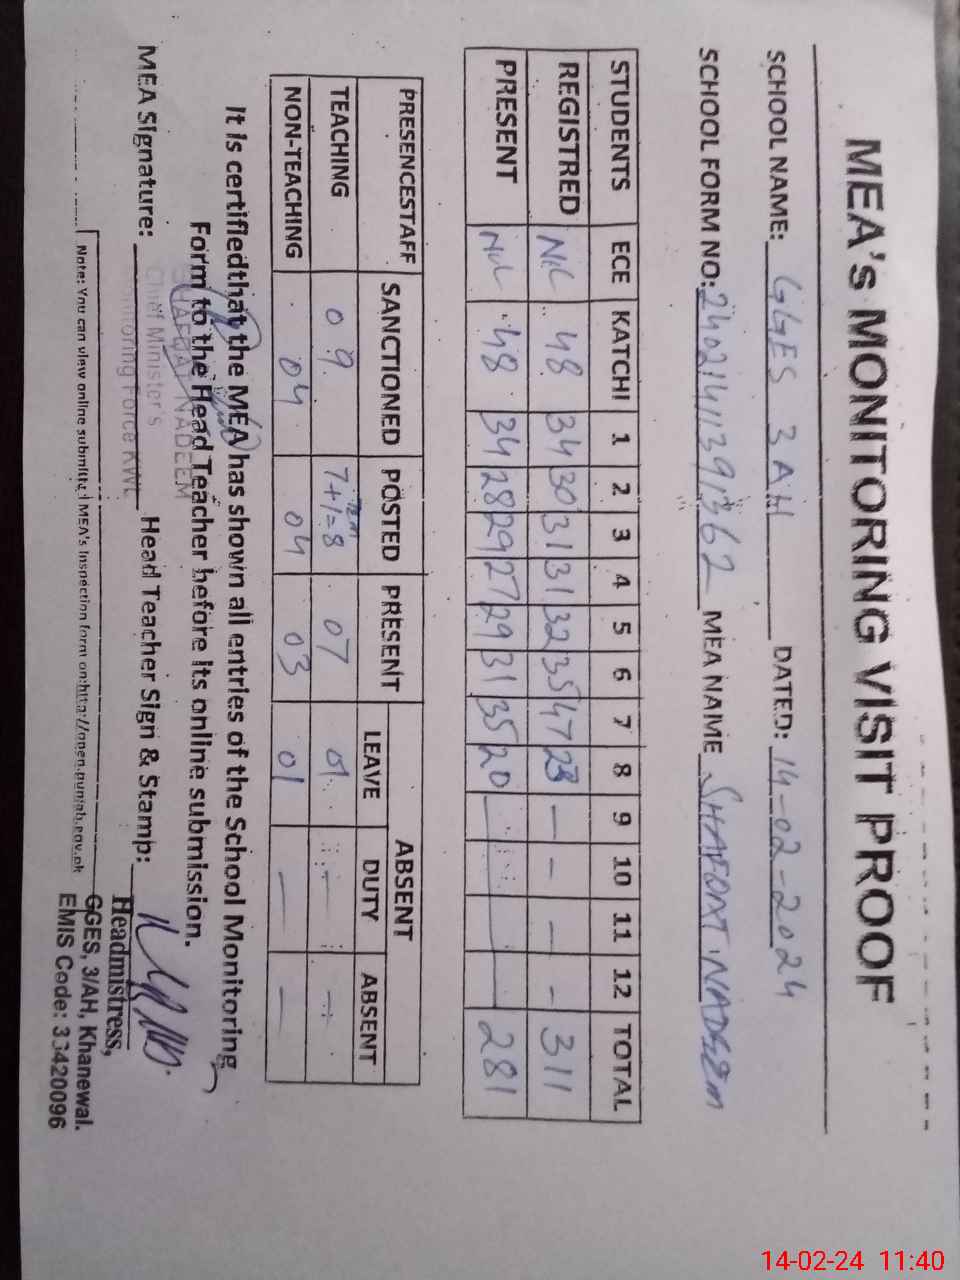 MEA's MONITORING VISIT PROOF
SCHOOL NAME: GGES 3AH DATED: 14-02-2024
SCHOOL FORM NO: 24021411391362 MEA NAME SHAFQAT NADEEM
STUDENTS ECE KATCHI 1 2 3 4 5 6 7 8 9 10 11 12 TOTAL
REGISTRED Nil 48 34 30 31 31 32 35 47 23 - - - - 311
PRESENT Nil 48 34 28 29 27 29 31 35 20 281
PRESENCESTAFF SANCTIONED POSTED PRESENT ABSENT
LEAVE DUTY ABSENT
TEACHING 09 7+1=8 07 01 - -
NON-TEACHING 04 04 03 01 - -
It is certifiedthat the MEA has shown all entries of the School Monitoring
Form to the Head Teacher before its online submission.
SHAFQAT NADEEM
Chief Minister's
Monitoring Force KWL
MEA Signature: Head Teacher Sign & Stamp:
Headmistress,
GGES, 3/AH, Khanewal.
EMIS Code: 33420096
Note: You can view online submitted MEA's Inspection form on:http://open.punjab.gov.pk
14-02-24 11:40